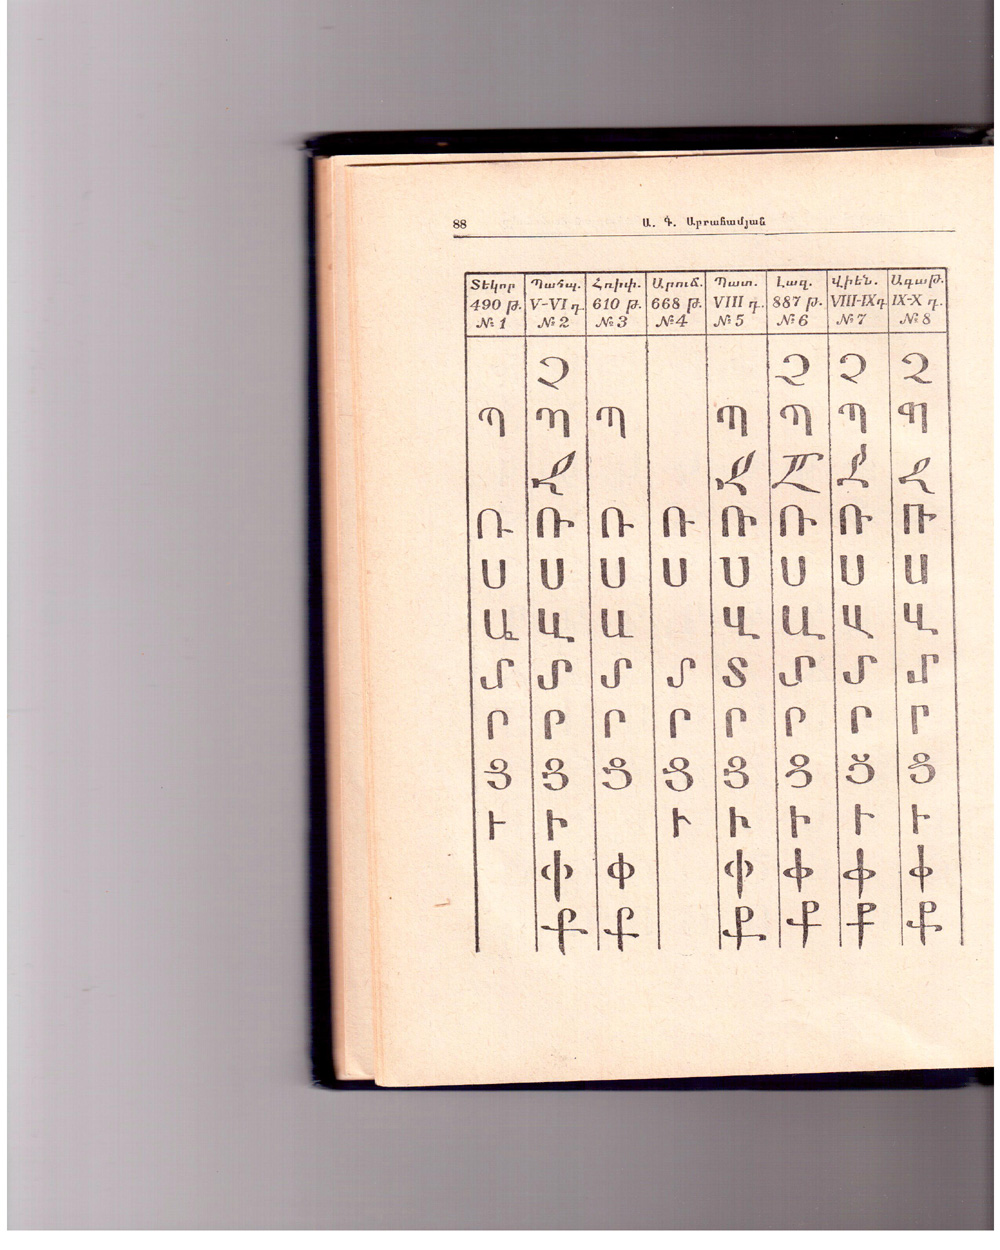 88
Ա. Գ. Աբրահամյան
Տեկոր Պապ. Հռիփ. Արուճ. Պատ. Լազ. Վիեն. Ագաթ.
490 թ. V-VI դ. 610 թ. 668 թ. VIII դ. 887 թ. VIII-IX դ. IX-X դ.
№ 1 № 2 № 3 № 4 № 5 № 6 № 7 № 8
Չ Չ Չ Չ
Պ Պ Պ Պ Պ Պ Պ
Ջ Ջ Ջ Ջ Ջ
Ռ Ռ Ռ Ռ Ռ Ռ Ռ Ռ
Ս Ս Ս Ս Ս Ս Ս Ս
Վ Վ Վ Վ Վ Վ Վ
Տ Տ Տ Տ Տ Տ Տ Տ
Ր Ր Ր Ր Ր Ր Ր Ր
Ց Ց Ց Ց Ց Ց Ց Ց
Ւ Ւ Ւ Ւ Ւ Ւ Ւ
Փ Փ Փ Փ Փ Փ
Ք Ք Ք Ք Ք Ք